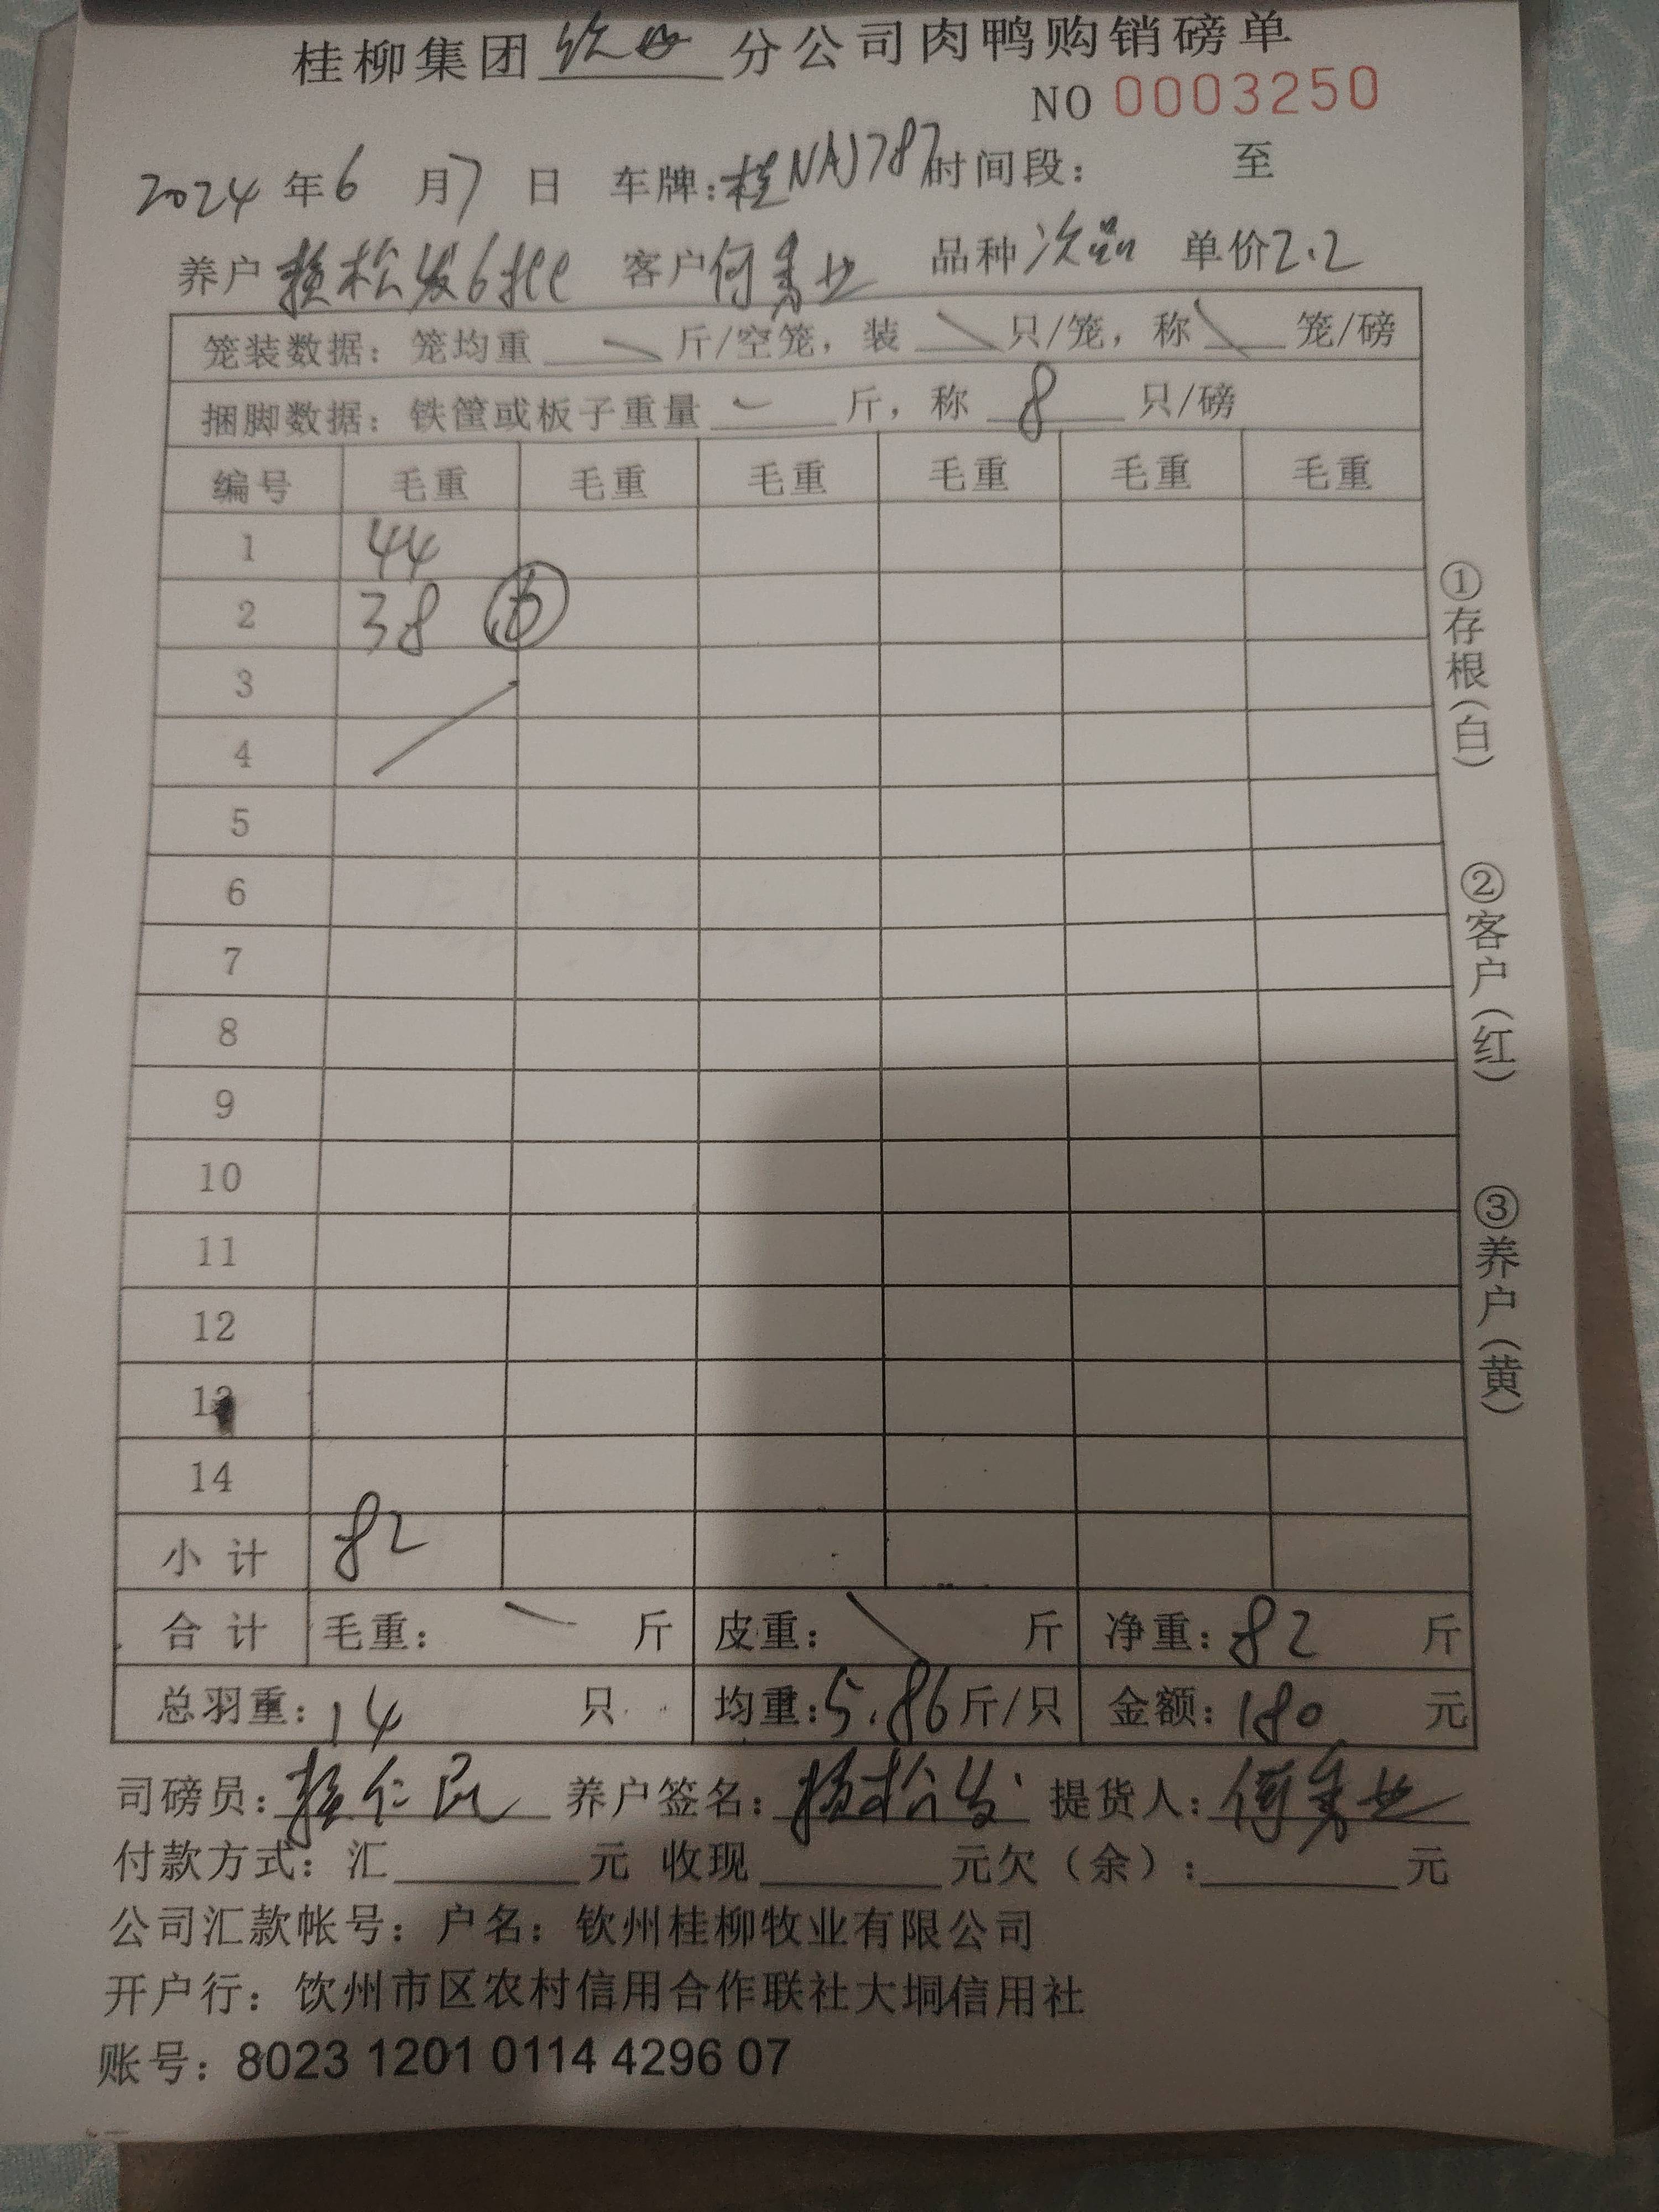 桂柳集团 钦州 分公司肉鸭购销磅单
NO 0003250
2024 年 6 月 7 日 车牌:桂NAJ787 时间段: 至
养户 赖松发6批 客户 何秀业 品种 次品 单价 2.2
笼装数据: 笼均重 斤/空笼, 装 只/笼, 称 笼/磅
捆脚数据: 铁筐或板子重量 斤, 称 8 只/磅
编号 毛重 毛重 毛重 毛重 毛重 毛重
1 44
2 38 ⑥
3
4
5
6
7
8
9
10
11
12
13
14
小 计 82
合 计 毛重: 斤 皮重: 斤 净重: 82 斤
总羽重: 14 只 均重: 5.86 斤/只 金额: 180 元
司磅员: 仁民 养户签名: 赖松发 提货人: 何秀业
付款方式: 汇 元 收现 元欠 (余) : 元
公司汇款帐号: 户名: 钦州桂柳牧业有限公司
开户行: 饮州市区农村信用合作联社大垌信用社
账号: 8023 1201 0114 4296 07
①存根(白)
②客户(红)
③养户(黄)